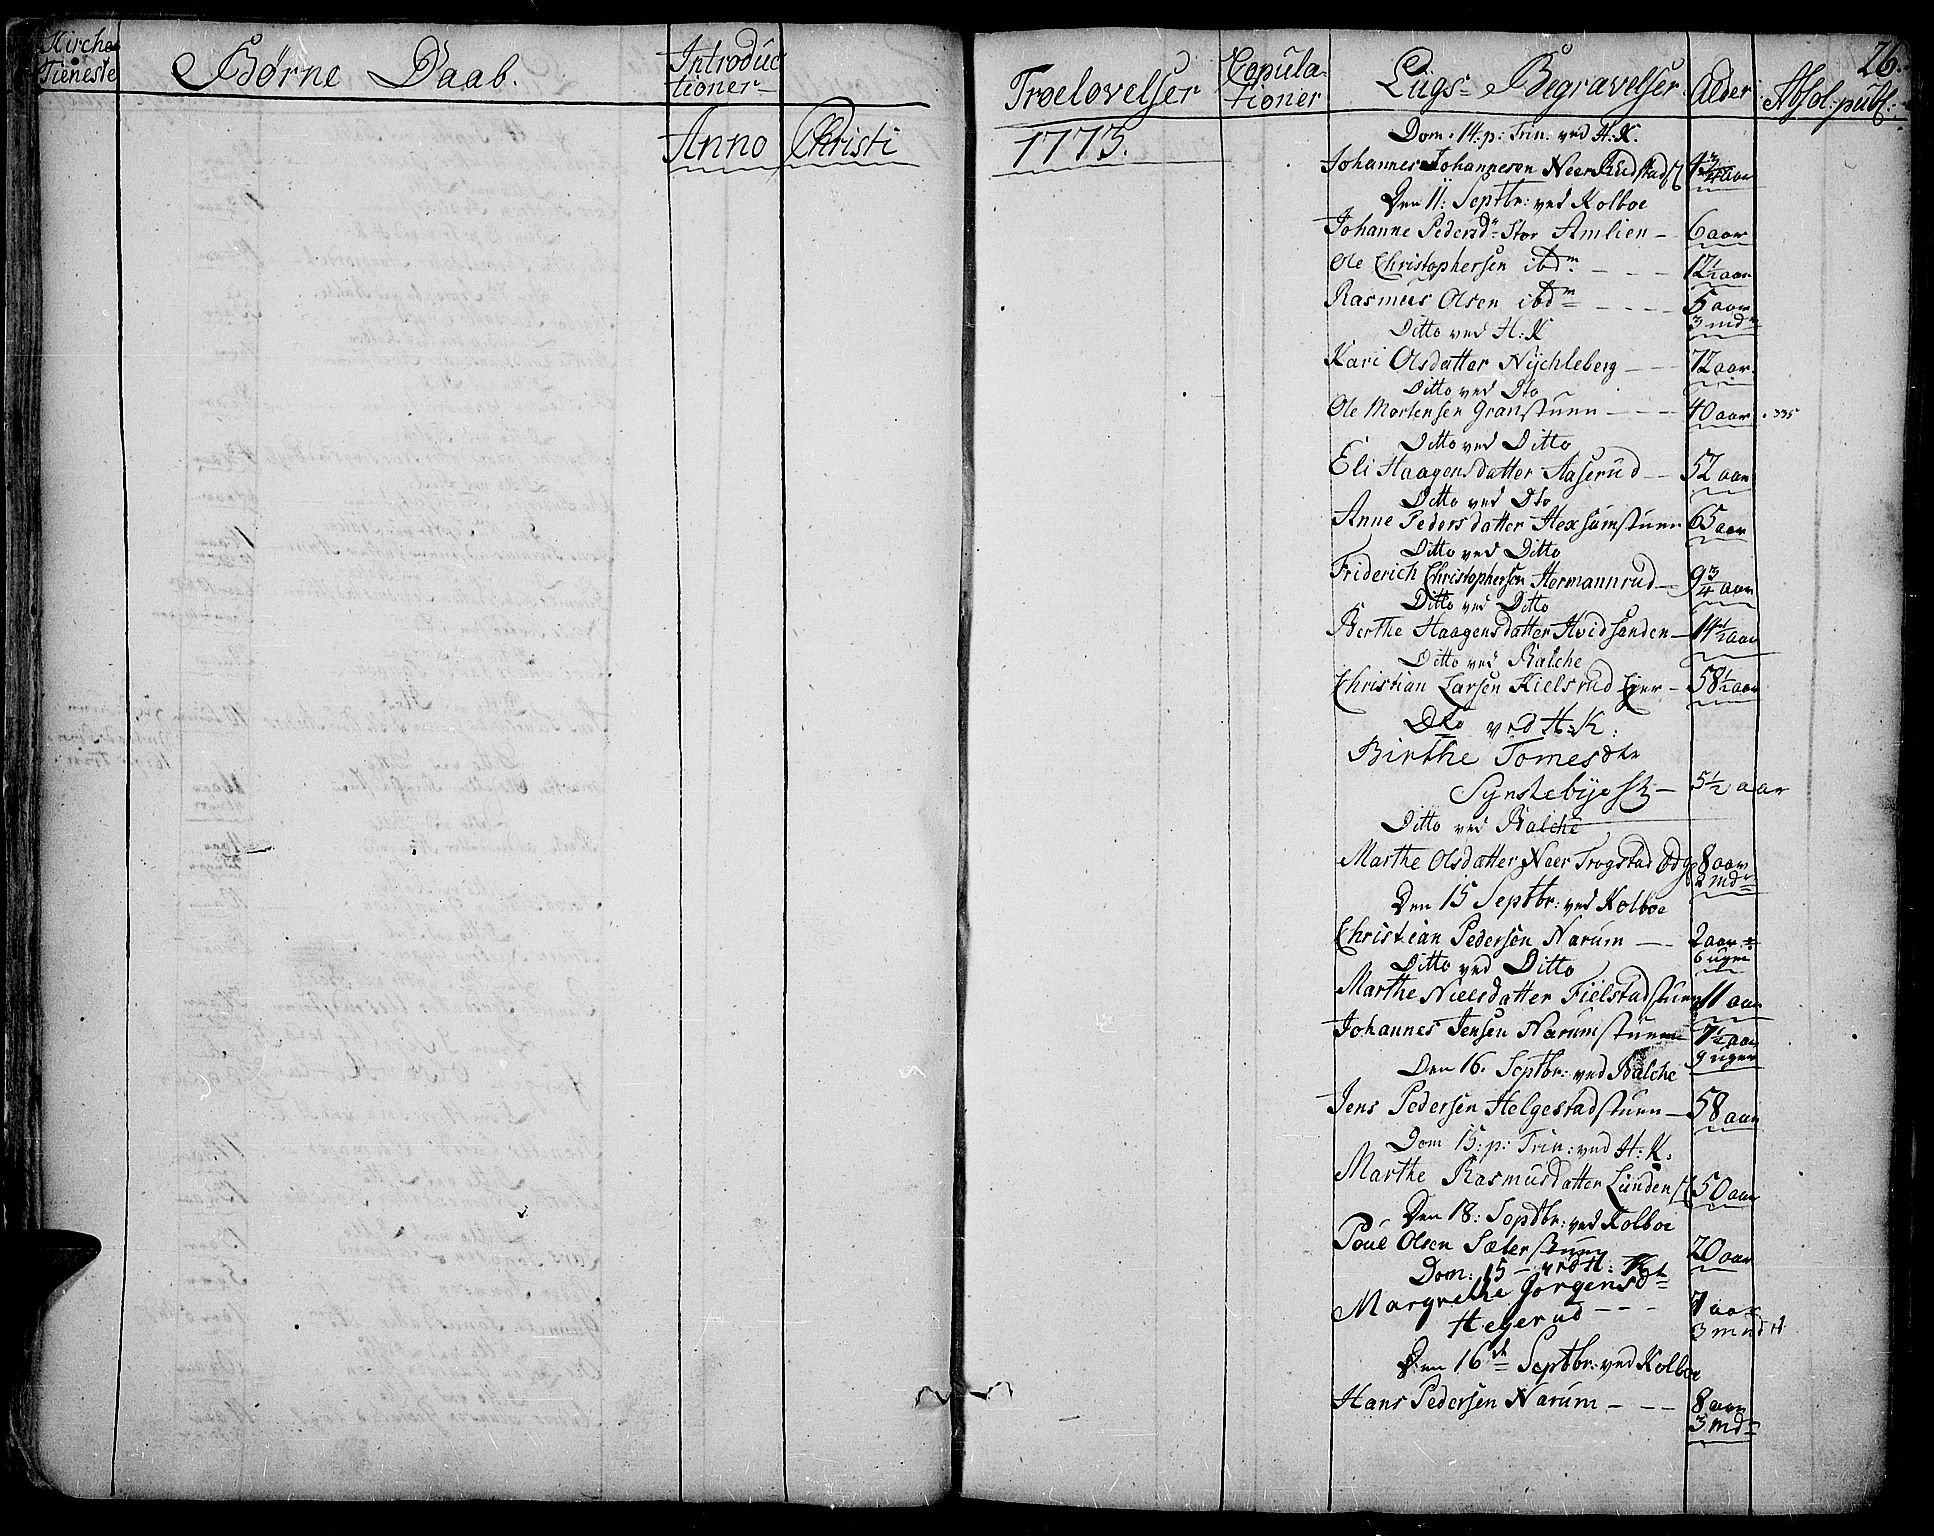 Kirche Tieneste
Børne Daab.
Introduc tioner
Anno Christi
Troelovelser
1773.
Copula tioner
Liigs= Begravelser
Alder
Absol: publ:
26.
Dom: 14: p: Trin: ved H: K.
Johannes Johannesen Neer Rudstad 4 3/4 aar
Den 11: Septbr: ved Kolboe
Johanne Pedersd: Stor Amlien – 6 aar
Ole Christophersen ibdm – – – 12 1/2 aar
Rasmus Olsen ibdm – – – – 5 aar
3 mdr
Ditto ved H: K
Kari Olsdatter Nychleberg – – – 72 aar.
Ditto ved Dto
Ole Mortensen Granstuen – – – 40 aar . 335
Ditto ved Ditto
Eli Haagensdatter Aaserud – – 52 aar
Ditto ved Dto
Anne Pedersdatter Hexsumstuen 65 aar
Ditto ved Ditto
Friderich Christophersen Hermannrud – 9 3/4 aar
Ditto ved Ditto
Berthe Haagensdatter Hvidsanden – 14 1/2 aar
Ditto ved Balche
Christian Larsen Kielsrud Ejer – 58 1/2 aar
Dto ved H: K:
Birthe Tomesdtr
Synstebye – 5 1/2 aar
Ditto ved Balche
Marthe Olsdatter Neer Trogstad 8 aar
2 mdr
Den 15 Septbr: ved Kolboe
Christian Pedersen Narum – – 2 aar
6 uger
Ditto ved Ditto
Marthe Nielsdatter Fielstadstuen 11 aar
Johannes Jensen Narumstuen 7 1/2 aar
9 uger
Den 16. Septbr: ved Balche
Jens Pedersen Helgestadstuen – 58 aar
Dom 15: p: Trin: ved H: K:
Marthe Rasmusdatter Lunden 50 aar
Den 18: Septbr: ved Kolboe
Poul Olsen Sæterstuen 20 aar
Dom: 15 – ved H: K
Margrethe Jorgensdt
Hegerud – – – 7 aar
3 mndr
Den 16de Septbr: ved Kolboe
Hans Pedersen Narum – – – 8 aar
3 mdr